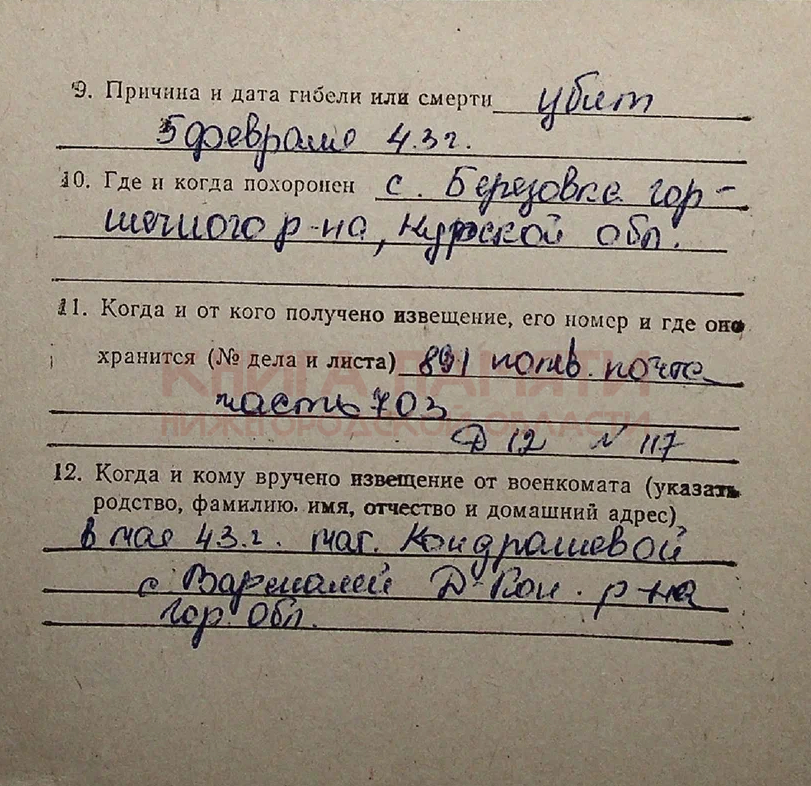 9. Причина и дата гибели или смерти убит
5 февраля 43г.
10. Где и когда похоронен с. Березовка гор-
шечного р-на, Курской обл.
11. Когда и от кого получено извещение, его номер и где оно
хранится (№ дела и листа) 891 полев. почта
КНИГА ПАМЯТИ
часть 703
НИЖЕГОРОДСКОЙ ОБЛАСТИ
Д 12 N 117
12. Когда и кому вручено извещение от военкомата (указать
родство, фамилию, имя, отчество и домашний адрес)
в мае 43.г. мат. Кондрашевой
с Вармалей Д-Кон. р-на
Гор. обл.